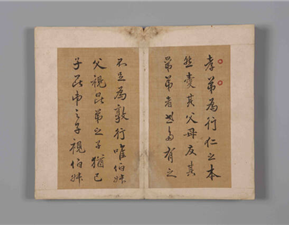 孝弟為行仁之本
然愛其父母友其
弟弟者世多有之
不足為敦行唯伯叔
父視昆弟之子猶己
子昆弟之子視伯叔